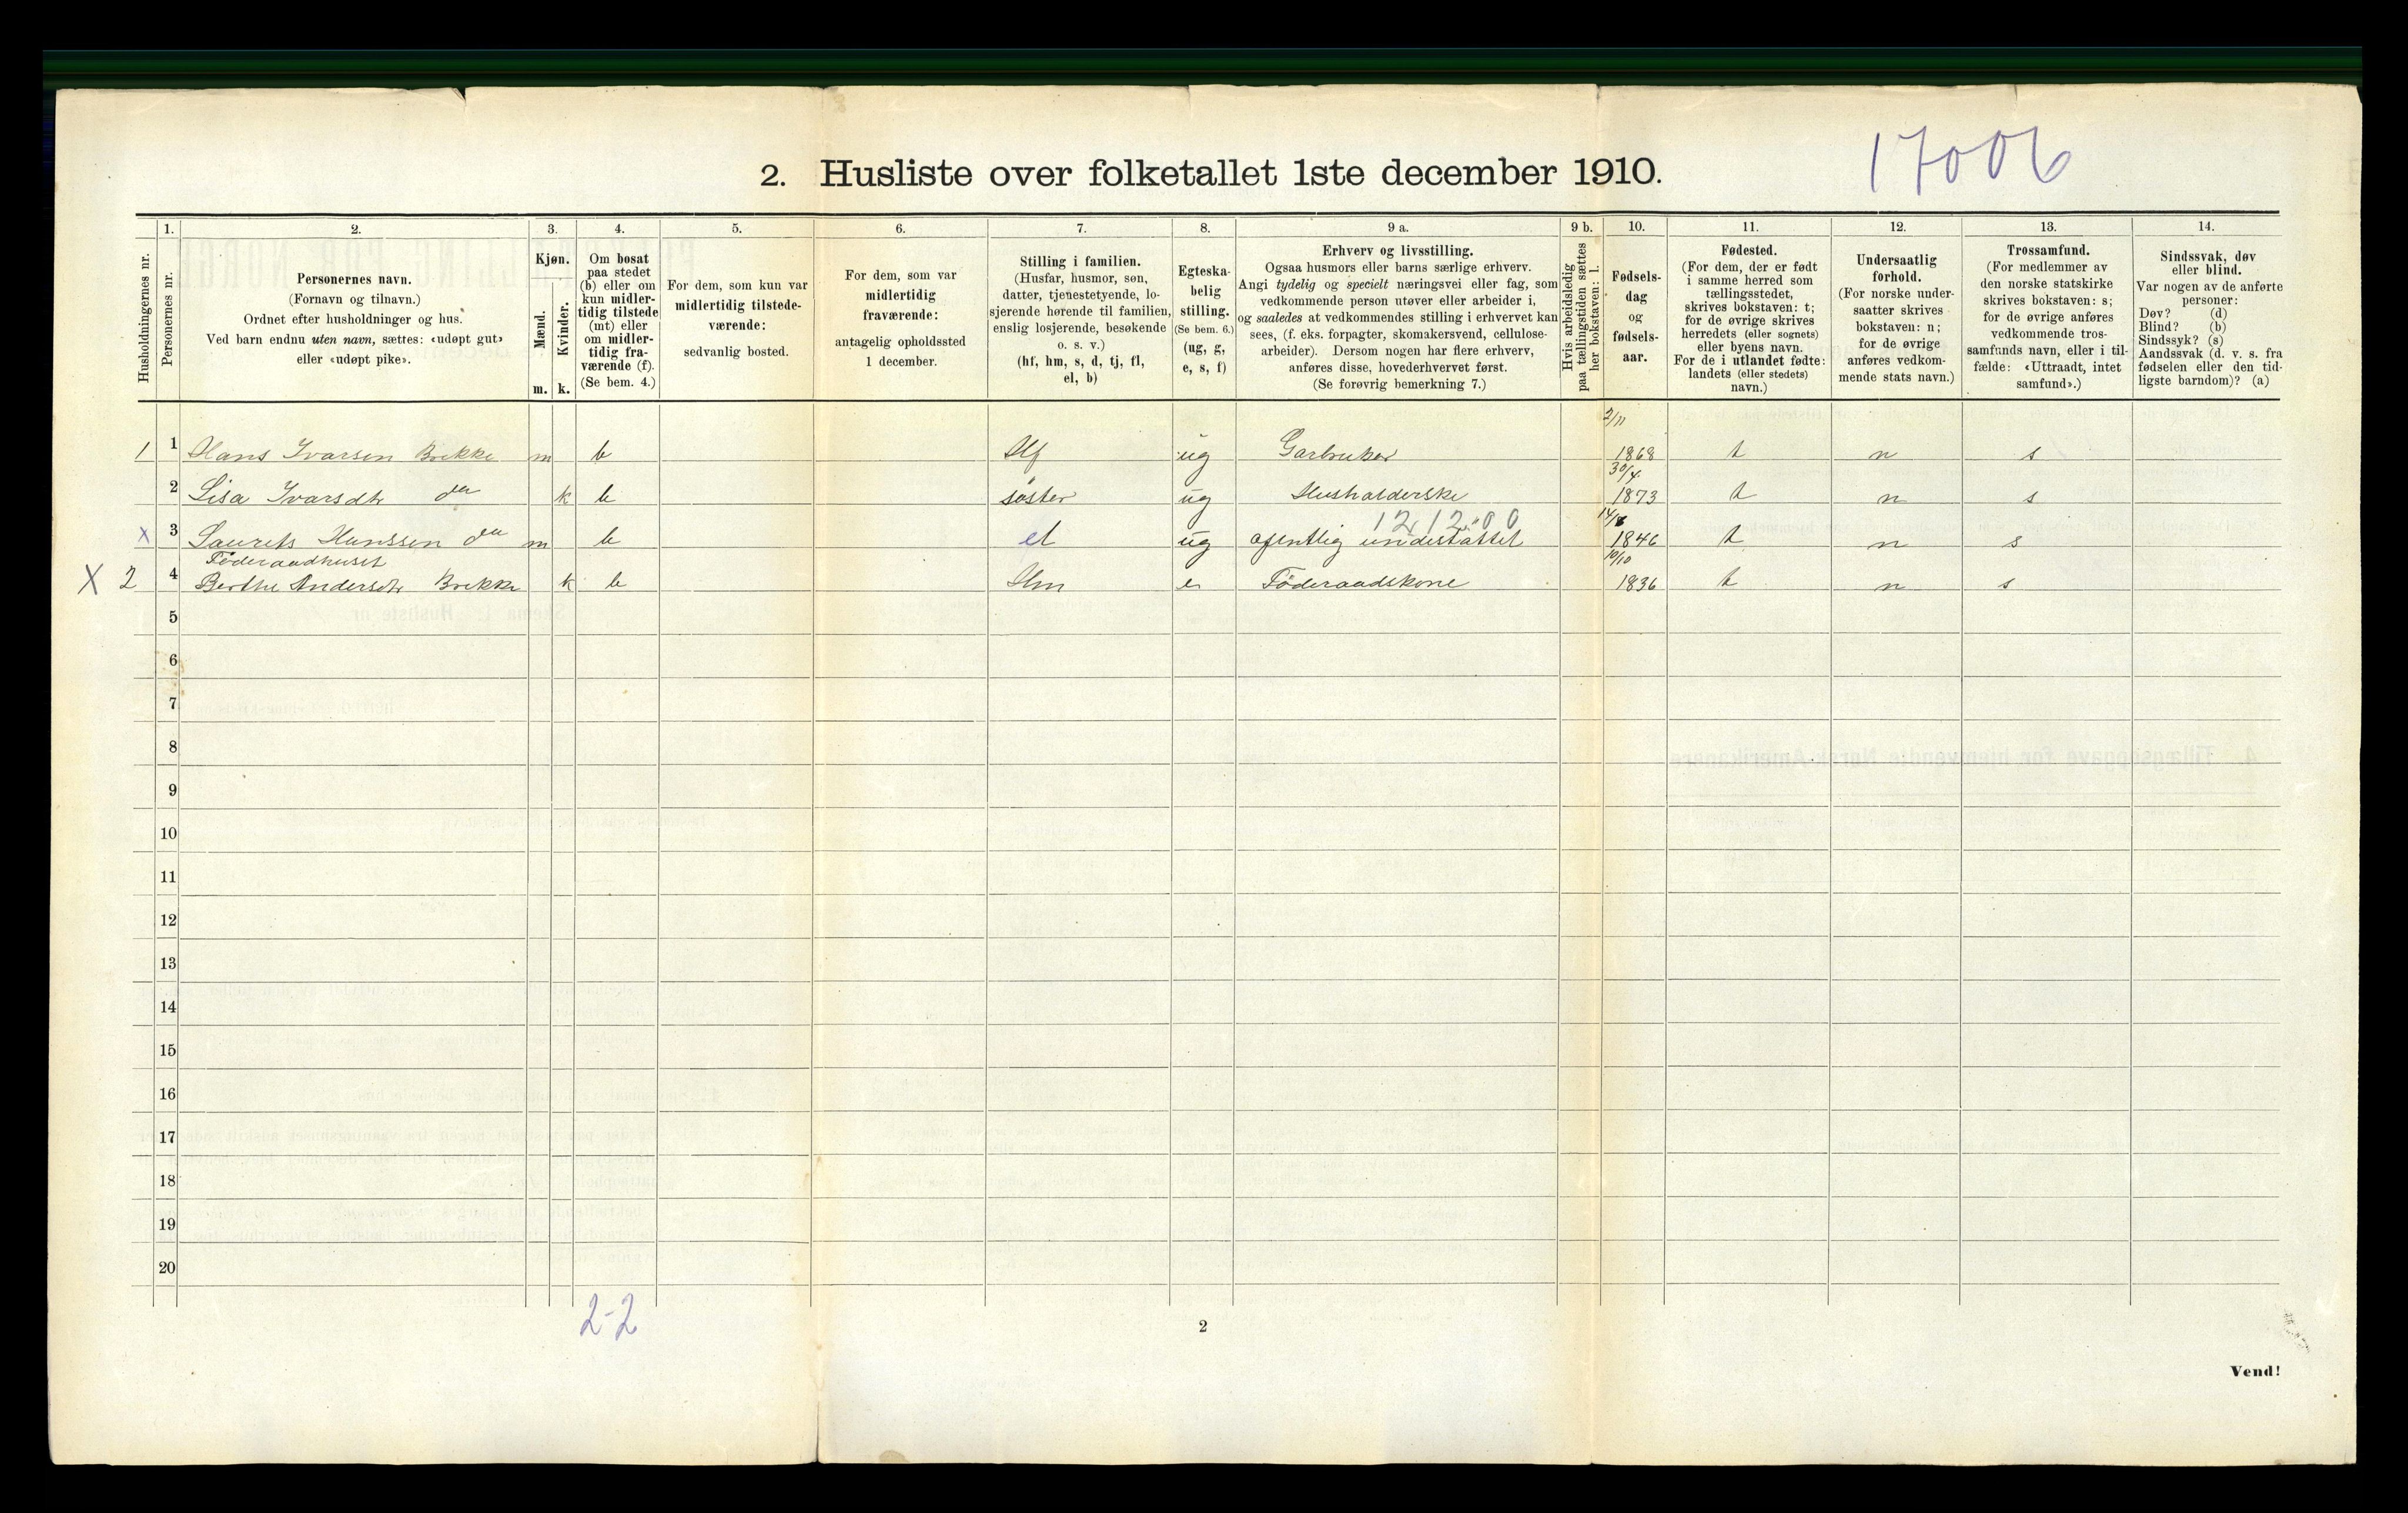 17006
2. Husliste over folketallet 1ste december 1910.
Husholdningernes nr.
1.
Personernes nr.
2.
Personernes navn.
(Fornavn og tilnavn.)
Ordnet efter husholdninger og hus.
Ved barn endnu uten navn, sættes: «udøpt gut»
eller «udøpt pike».
3.
Kjøn.
Mænd.
Kvinder.
m. k.
4.
Om bosat
paa stedet
(b) eller om
kun midler-
tidig tilstede
(mt) eller
om midler-
tidig fra-
værende (f).
(Se bem. 4.)
5.
For dem, som kun var
midlertidig tilstede-
værende:
sedvanlig bosted.
6.
For dem, som var
midlertidig
fraværende:
antagelig opholdssted
1 december.
7.
Stilling i familien.
(Husfar, husmor, søn,
datter, tjenestetyende, lo-
sjerende hørende til familien,
enslig losjerende, besøkende
o. s. v.)
(hf, hm, s, d, tj, fl,
el, b)
8.
Egteska-
belig
stilling.
(Se bem. 6.)
(ug, g,
e, s, f)
9 a.
Erhverv og livsstilling.
Ogsaa husmors eller barns særlige erhverv.
Angi tydelig og specielt næringsvei eller fag, som
vedkommende person utøver eller arbeider i,
og saaledes at vedkommendes stilling i erhvervet kan
sees, (f. eks. forpagter, skomakersvend, cellulose-
arbeider). Dersom nogen har flere erhverv,
anføres disse, hovederhvervet først.
(Se forøvrig bemerkning 7.)
9 b.
Hvis arbeidsledig
paa tællingstiden sættes
her bokstaven: l.
10.
Fødsels-
dag
og
fødsels-
aar.
11.
Fødested.
(For dem, der er født
i samme herred som
tællingsstedet,
skrives bokstaven: t;
for de øvrige skrives
herredets (eller sognets)
eller byens navn.
For de i utlandet fødte:
landets (eller stedets)
navn.)
12.
Undersaatlig
forhold.
(For norske under-
saatter skrives
bokstaven: n;
for de øvrige
anføres vedkom-
mende stats navn.)
13.
Trossamfund.
(For medlemmer av
den norske statskirke
skrives bokstaven: s;
for de øvrige anføres
vedkommende tros-
samfunds navn, eller i til-
fælde: «Uttraadt, intet
samfund».)
14.
Sindssvak, døv
eller blind.
Var nogen av de anførte
personer:
Døv? (d)
Blind? (b)
Sindssyk? (s)
Aandssvak (d. v. s. fra
fødselen eller den tid-
ligste barndom)? (a)
2/11
1 1 Hans Ivarsen Brekke m b Hf ug Garbruker 1868 t n s
30/4
2 Lisa Ivarsdtr do k b søster ug Husholderske 1873 t n s
12.12.00
x 3 Laurits Hanssen do m b el ug ofentlig understøttet 1846 t n s
Föderaadhuset 10/10
X 2 4 Berthe Andersdtr Brekke k b Hm e Föderaadskone 1836 t n s
5
6
7
8
9
10
11
12
13
14
15
16
17
18
19
20
2-2
2
Vend!